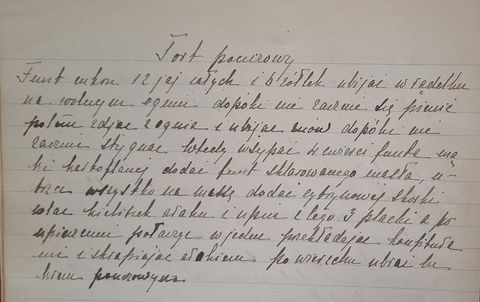 Tort ponczowy
Funt cukru 12 jaj całych i 6 żółtek ubijać w rądelku
na wolnym ogniu dopóki nie zacznie się pienić
potem zdjąć z ognia i ubijać znów dopóki nie
zacznie stygnąć wtedy wsypać ćwierci funta mą
ki kartoflanej dodać funt sklarowanego masła, u-
trzeć wszystko na masę dodać cytrynowej skórki
wlać kieliszek araku i upiec z tego 3 placki a po
upieczeniu połączyć w jeden przekładając konfitura
mi i skrapiając arakiem po wierzchu ubrać lu
krem ponczowym.